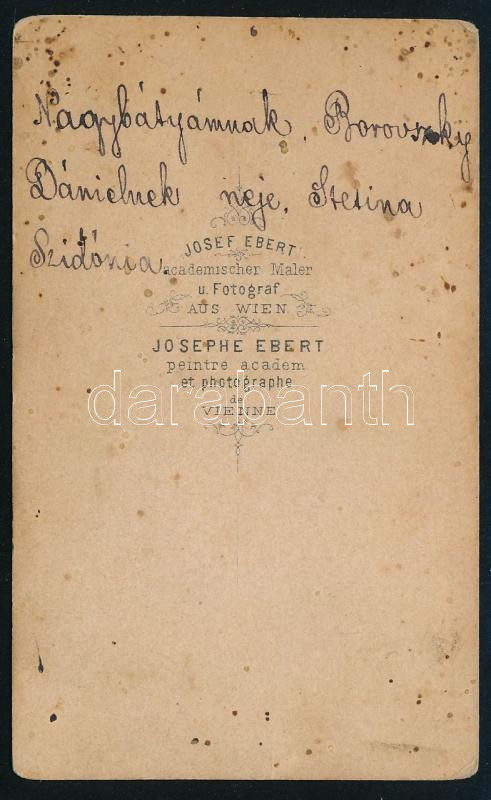 Nagybátyámnak, Borovszky
Dánielnek neje, Stetina
Szidónia
JOSEF EBERT
academischer Maler
u. Fotograf
AUS WIEN
JOSEPHE EBERT
peintre academ
et photographe
de
VIENNE
darabanth